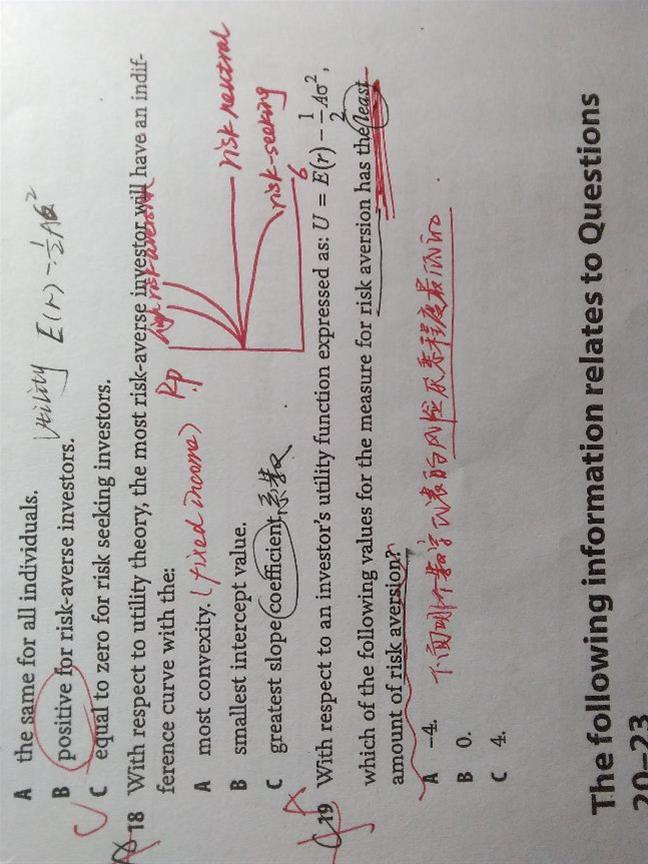 A the same for all individuals.
B positive for risk-averse investors.
Utility E(r) - 1/2 Aσ²
C equal to zero for risk seeking investors.
18 With respect to utility theory, the most risk-averse investor will have an indif-
ference curve with the:
A most convexity. (fixed income)
B smallest intercept value.
C greatest slope coefficient. 系数
Rp
risk neutral
risk-seeking
19 With respect to an investor's utility function expressed as: U = E(r) − 1/2 Aσ²,
which of the following values for the measure for risk aversion has the least
amount of risk aversion?
A −4. 下面哪个数字代表的风险厌恶程度最低的
B 0.
C 4.
The following information relates to Questions
20–23